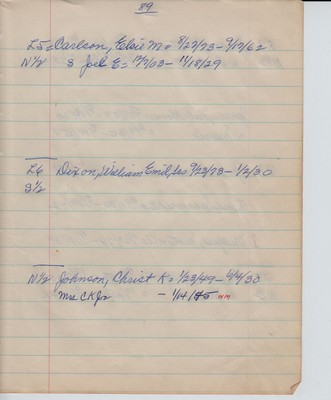 89
L5= Carlson, Elsie M= 8/27/73 - 9/17/62
N 1/2 & Joel E= 12/7/03 - 11/18/29
L6 Dixon, William Emil, Leo 9/23/73 - 1/2/30
S 1/2
N 1/2 Johnson, Christ K= 1/23/49 - 4/4/30
Mrs CK Jo - 1/14/